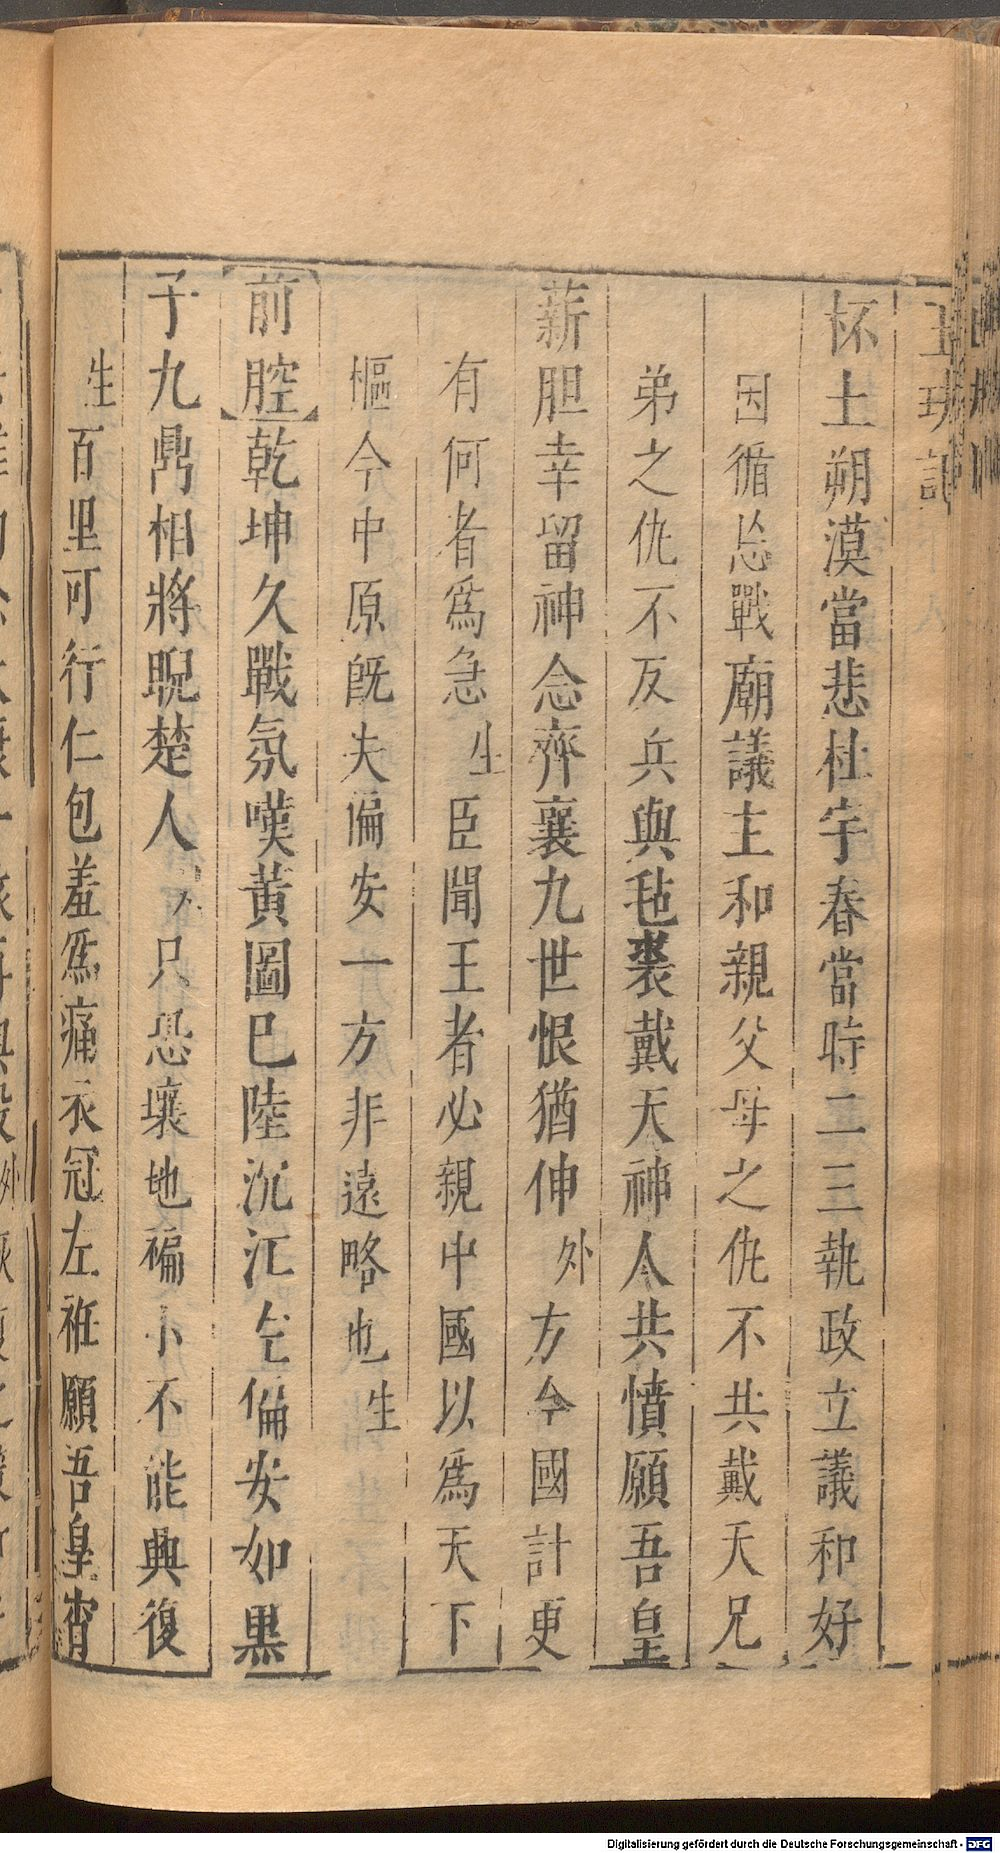 玉玦記
杯土朔漠當悲杜宇春當時二三執政立議和好
因循忘戰廟議主和親父母之仇不共戴天兄
弟之仇不反兵與毡裘戴天神人共憤願吾皇
薪胆幸留神念齊襄九世恨猶伸外方今國計更
有何者為急生臣聞王者必親中國以為天下
樞今中原旣夫偏安一方非遠略也生
前腔乾坤久戰氛嘆黄圖已陸沉江左偏安如黒
子九鼎相將睨楚人只恐壤地褊小不能興復
生百里可行仁包羞爲痛衣冠左袵願吾皇宵
Digitalisierung gefördert durch die Deutsche Forschungsgemeinschaft - DFG